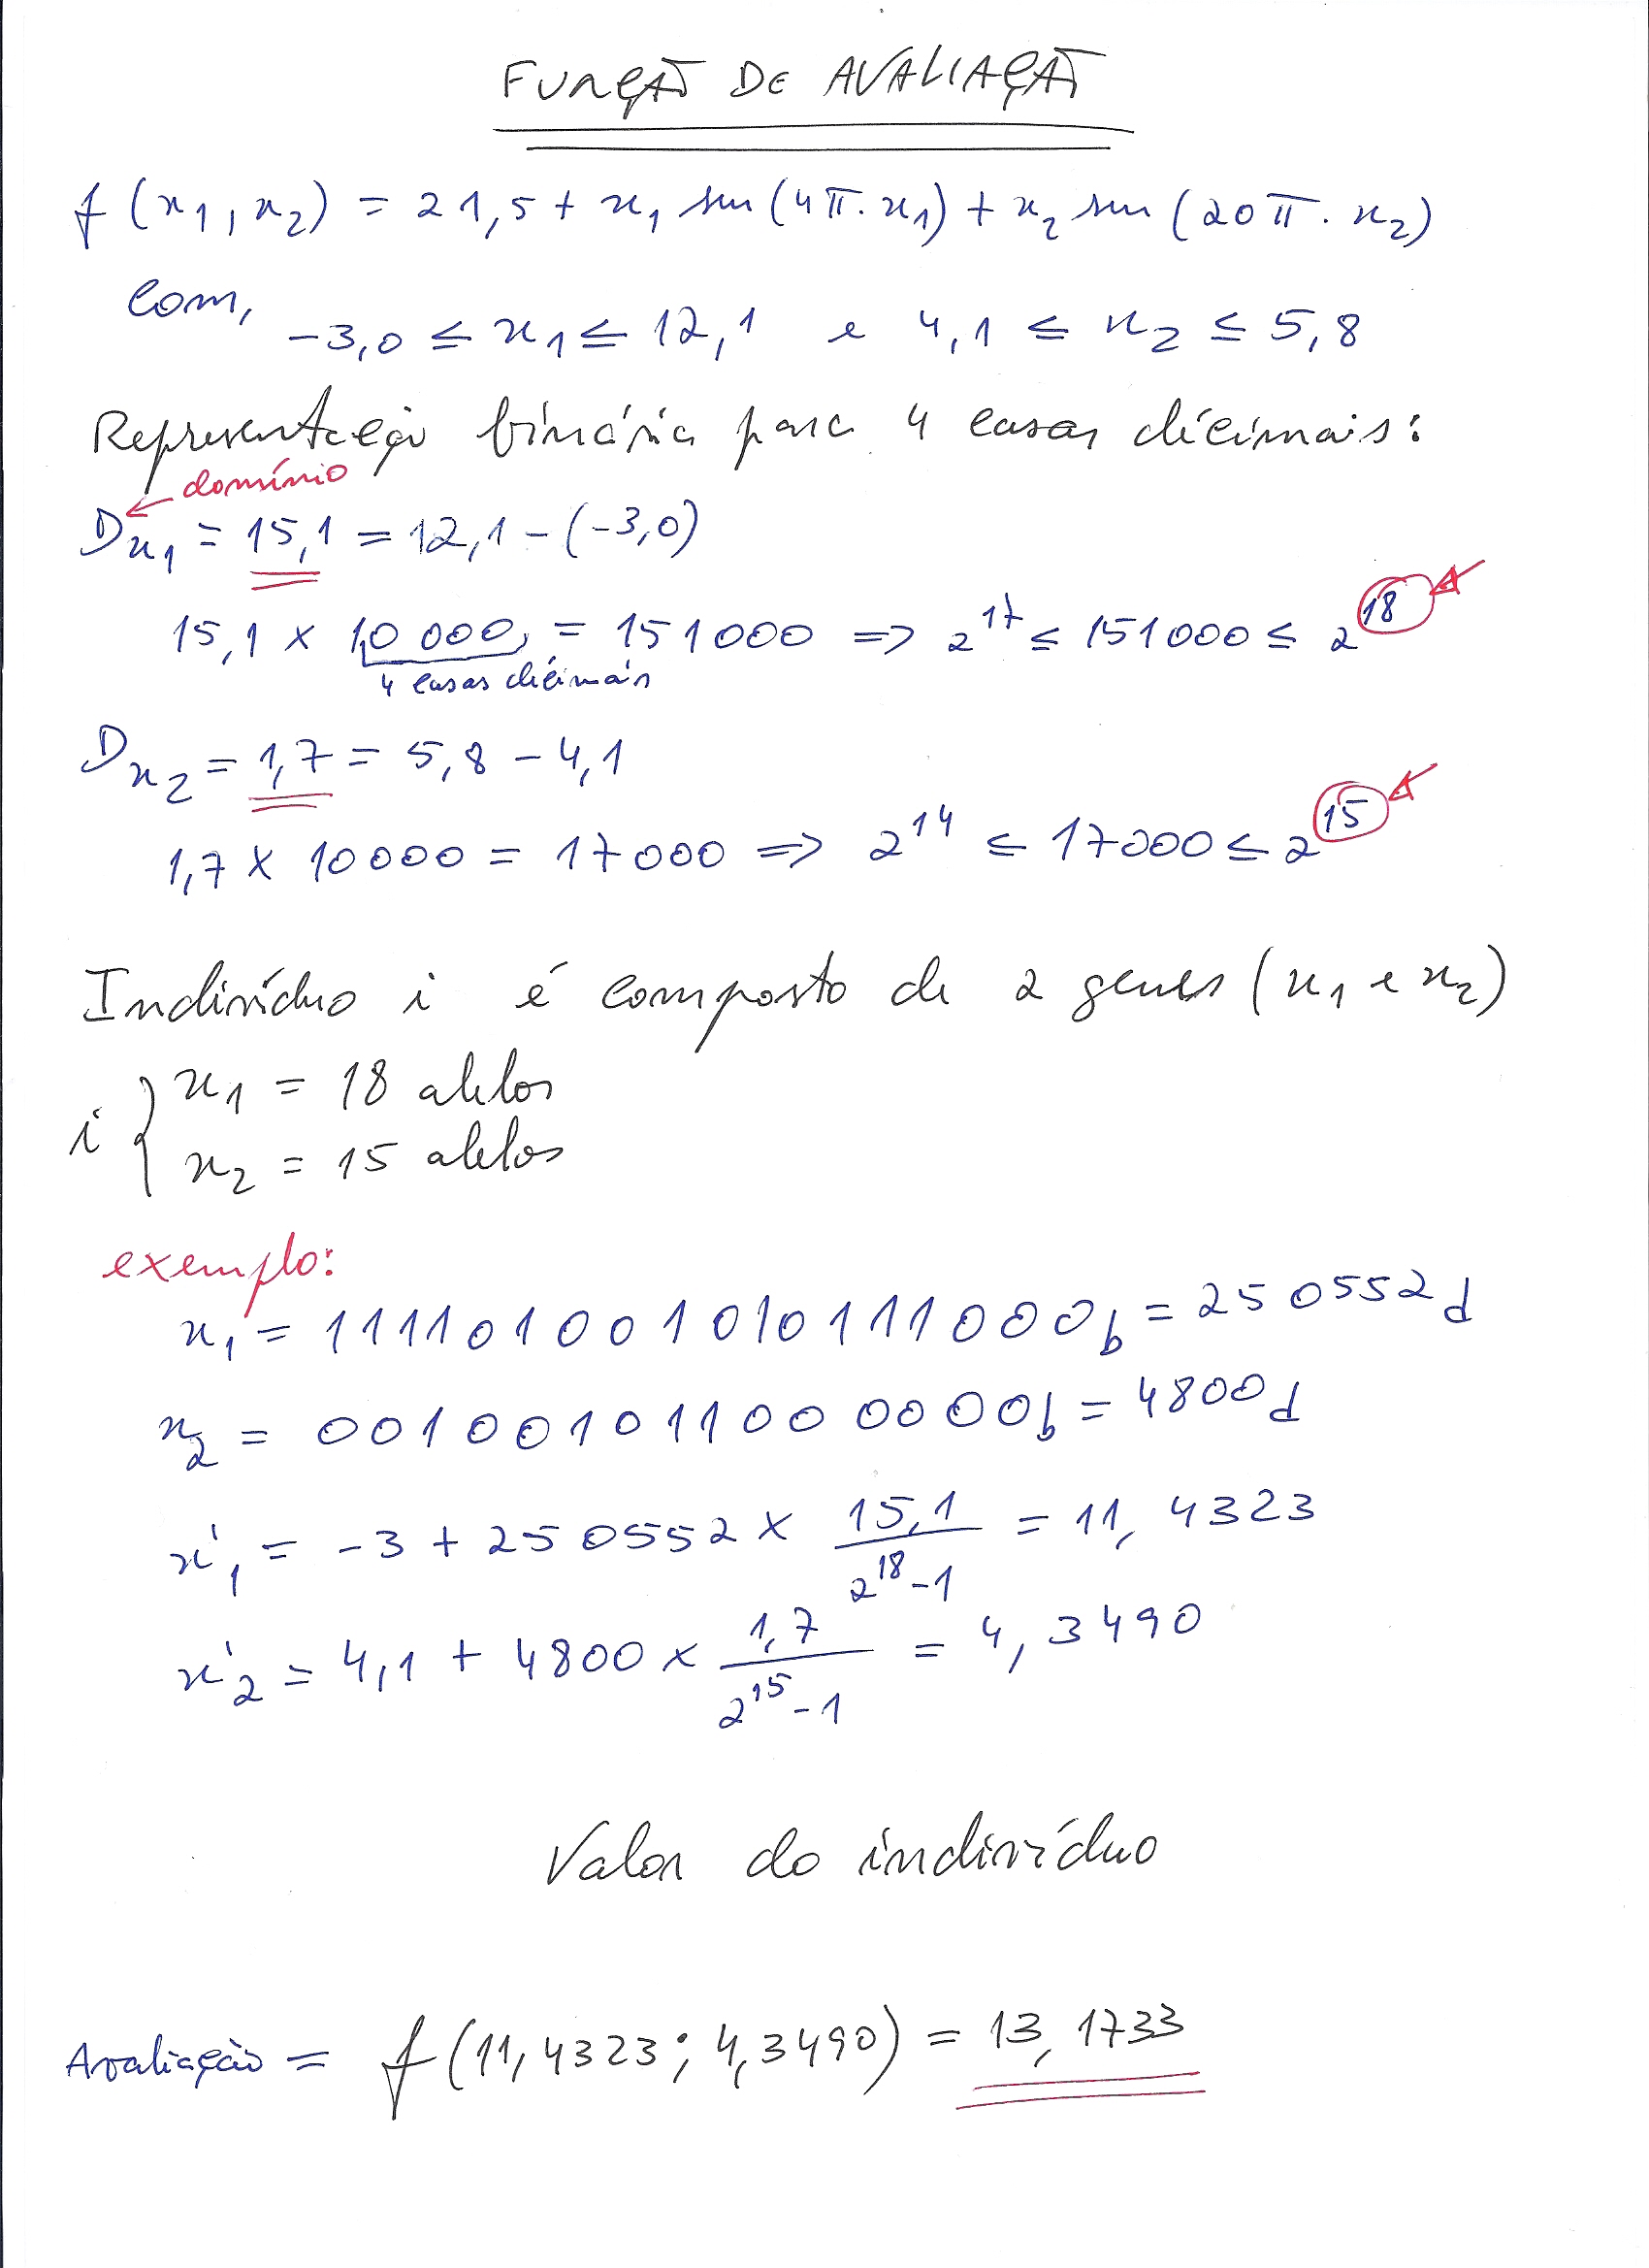 FUNÇÃO DE AVALIAÇÃO
f (x1, x2) = 21,5 + x1 sen (4π. x1) + x2 sen (20π. x2)
Com,
-3,0 ≤ x1 ≤ 12,1 e 4,1 ≤ x2 ≤ 5,8
Representação binária para 4 casas décimais:
domínio
Dx1 = 15,1 = 12,1 - (-3,0)
15,1 x 10 000 = 151000 => 2^17 ≤ 151000 ≤ 2^18
4 casas décimais
Dx2 = 1,7 = 5,8 - 4,1
1,7 x 10000 = 17000 => 2^14 ≤ 17000 ≤ 2^15
Indivíduo i é composto de 2 genes (x1 e x2)
i { x1 = 18 alelos
x2 = 15 alelos
exemplo:
x1 = 111101001010111000b = 250552d
x2 = 001001011000000b = 4800d
x'1 = -3 + 250552 x 15,1 / 2^18 - 1 = 11,4323
x'2 = 4,1 + 4800 x 1,7 / 2^15 - 1 = 4,3490
Valor do indivíduo
Avaliação = f (11,4323; 4,3490) = 13,1733